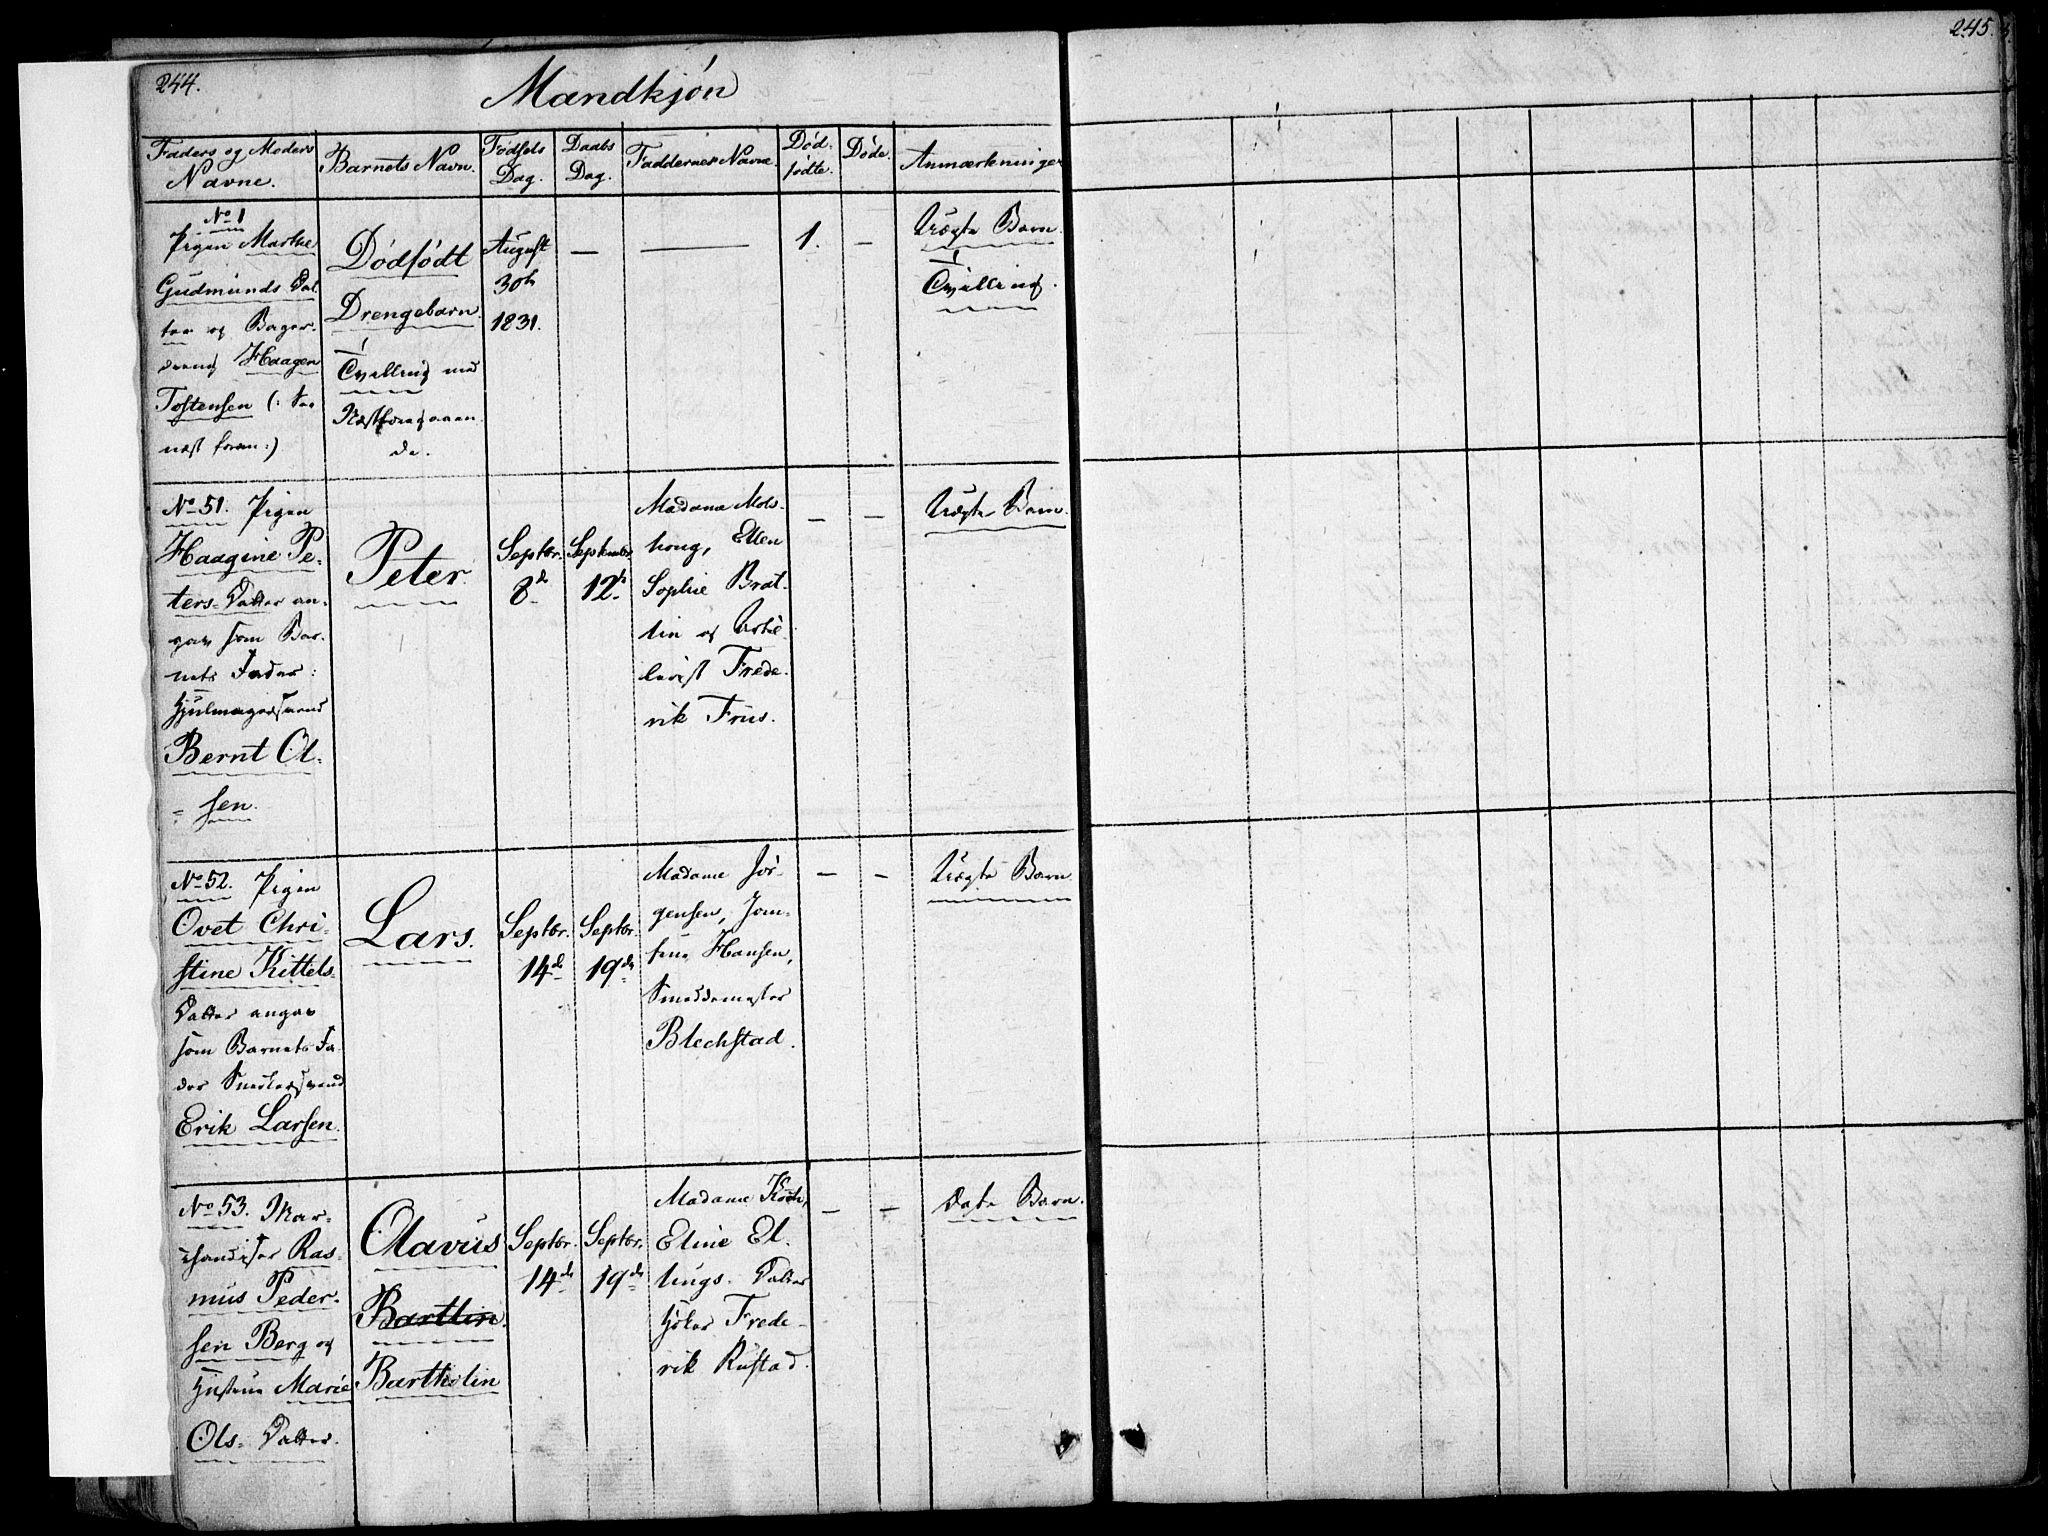 244.
Mandkjön
245.
Faders og Moders
Navne.
Barnets Navn.
Födsels
Dag.
Daabs
Dag.
Faddernes Navne.
Död-
födte.
Døde.
Anmærkninger
No 1
Pigen Marthe
Gudmunds Dat
ter og Bager-
svend Haagen
Tostensen (: See
næst foran :)
Dödfödt
Drengebarn.
Tvilling med
Næstforegaaen
de.
August
30te
1831.
—
—
1.
—
Uægte Barn.
Tvilling.
No 51. Pigen
Haagine Pe-
ters-Datter an-
gav som Bar-
nets Fader:
Hjulmagersvend
Bernt Ol-
- sen.
Peter
Septbr.
8de
September
12te
Madame Mols-
houg, Ellen
Sophie Brat-
lin og
Frede-
rik Friis.
—
—
Uægte Barn.
No 52. Pigen
Ovet Chri-
stine Kittels-
Datter angav
som Barnets Fa-
der Snedkersvend
Erik Larsen.
Lars.
Septbr.
14de
Septbr.
19de
Madame Jör-
gensen, Jom-
frue Hansen,
Smeddemester
Blechstad.
—
—
Uægte Barn
No 53. Mar-
chandiser Ras-
mus Peder-
sen Berg og
Hustrue Marie
Ols- Datter.
Olavus
Bartlin.
Bartholin
Septbr.
14de
Septbr.
19de
Madame Koch,
Eline El-
lings- Datter
Höker Frede-
rik Rustad.
—
—
Ægte Barn.